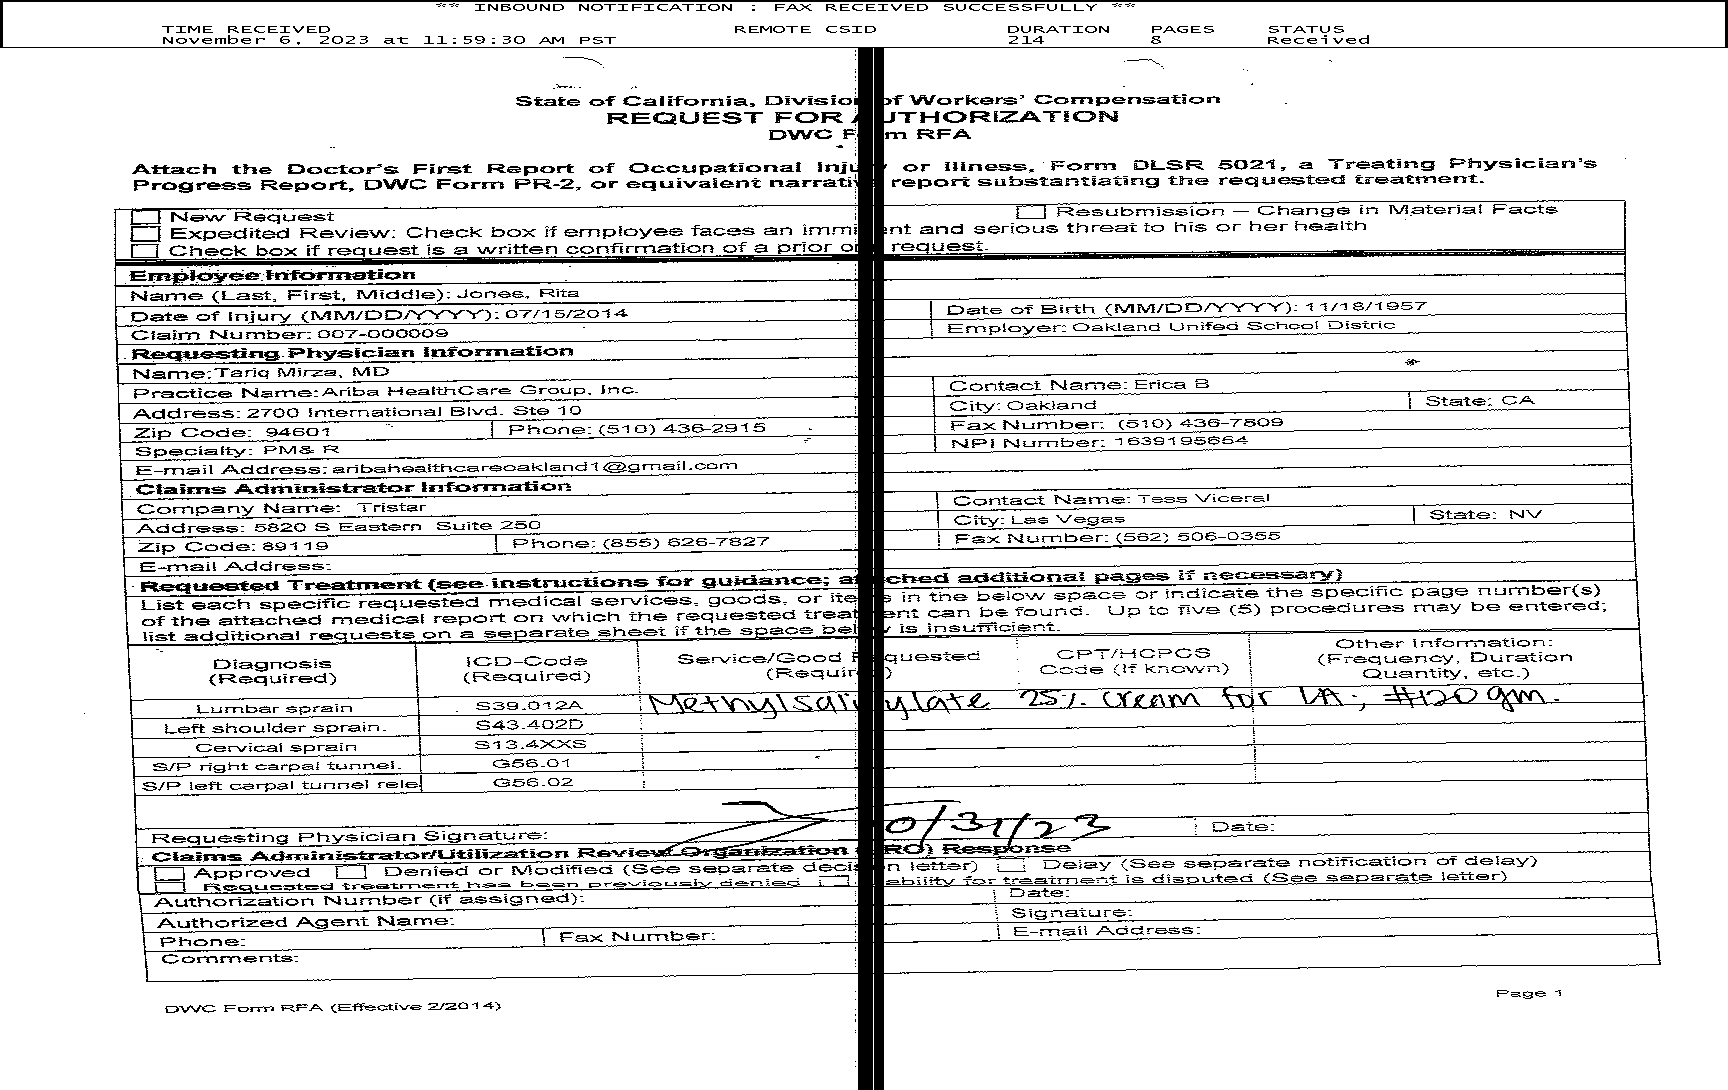 ** INBOUND NOTIFICATION : FAX RECEIVED SUCCESSFULLY **
TIME RECEIVED REMOTE CSID DURATION PAGES STATUS
November 6, 2023 at 11:59:30 AM PST 214 8 Received
State of California, Division of Workers' Compensation
REQUEST FOR AUTHORIZATION
DWC Form RFA
Attach the Doctor's First Report of Occupational Injury or Illness, Form DLSR 5021, a Treating Physician's
Progress Report, DWC Form PR-2, or equivalent narrative report substantiating the requested treatment.
New Request Resubmission – Change in Material Facts
Expedited Review: Check box if employee faces an imminent and serious threat to his or her health
Check box if request is a written confirmation of a prior oral request.
Employee Information
Name (Last, First, Middle): Jones, Rita
Date of Injury (MM/DD/YYYY): 07/15/2014 Date of Birth (MM/DD/YYYY): 11/18/1957
Claim Number: 007-000009 Employer: Oakland Unifed School Distric
Requesting Physician Information
Name: Tariq Mirza, MD
Practice Name: Ariba HealthCare Group, Inc. Contact Name: Erica B
Address: 2700 International Blvd. Ste 10 City: Oakland State: CA
Zip Code: 94601 Phone: (510) 436-2915 Fax Number: (510) 436-7809
Specialty: PM& R NPI Number: 1639195654
E-mail Address: aribahealthcareoakland1@gmail.com
Claims Administrator Information
Company Name: Tristar Contact Name: Tess Viceral
Address: 5820 S Eastern Suite 250 City: Las Vegas State: NV
Zip Code: 89119 Phone: (855) 626-7827 Fax Number: (562) 506-0355
E-mail Address:
Requested Treatment (see instructions for guidance; attached additional pages if necessary)
List each specific requested medical services, goods, or items in the below space or indicate the specific page number(s)
of the attached medical report on which the requested treatment can be found. Up to five (5) procedures may be entered;
list additional requests on a separate sheet if the space below is insufficient.
Diagnosis (Required) ICD-Code (Required) Service/Good Requested (Required) CPT/HCPCS Code (If known) Other Information: (Frequency, Duration Quantity, etc.)
Lumbar sprain S39.012A Methylsalicylate 25% cream for LA; #120gm.
Left shoulder sprain. S43.402D
Cervical sprain S13.4XXS
S/P right carpal tunnel. G56.01
S/P left carpal tunnel rele G56.02
Requesting Physician Signature: 10/31/23 Date:
Claims Administrator/Utilization Review Organization (URO) Response
Approved Denied or Modified (See separate decision letter) Delay (See separate notification of delay)
Requested treatment has been previously denied Liability for treatment is disputed (See separate letter)
Authorization Number (if assigned): Date:
Authorized Agent Name: Signature:
Phone: Fax Number: E-mail Address:
Comments:
DWC Form RFA (Effective 2/2014) Page 1